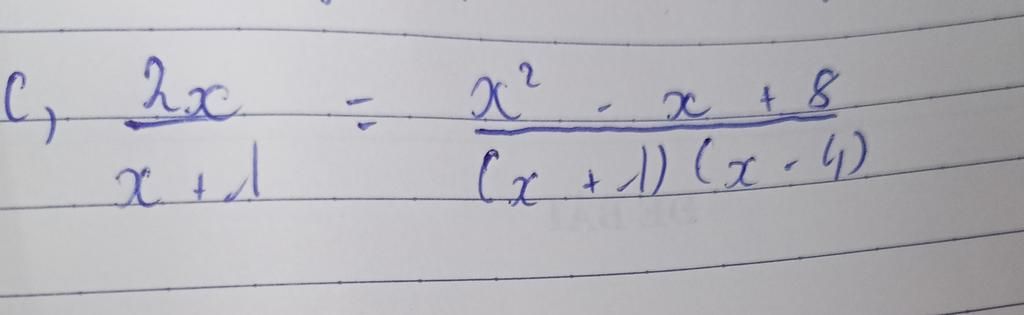 c, 2x/(x + 1) = (x² - x + 8)/((x + 1)(x - 4))